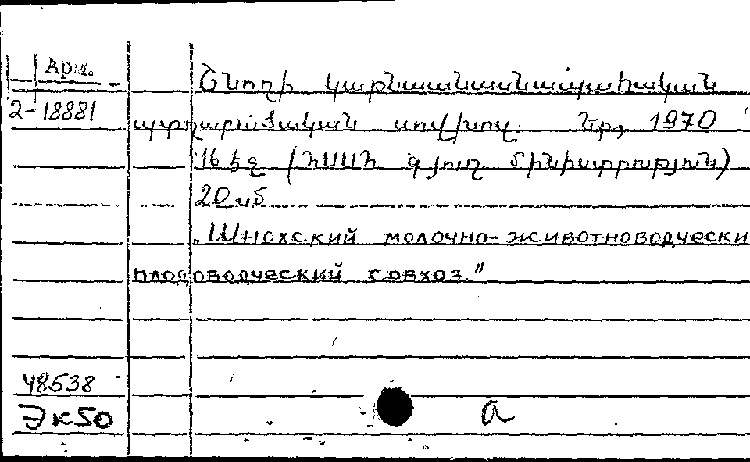 Арм.
2-18881
Շնողի կաթնաանասնապահական
պտղաբուծական սովխոզ. Եր., 1970
16 էջ (ՀՍՍՀ գյուղ մինիստրություն)
20 սմ
„Шнохский молочно-животноводчески
плодоводческий совхоз."
48538
Эк50
a